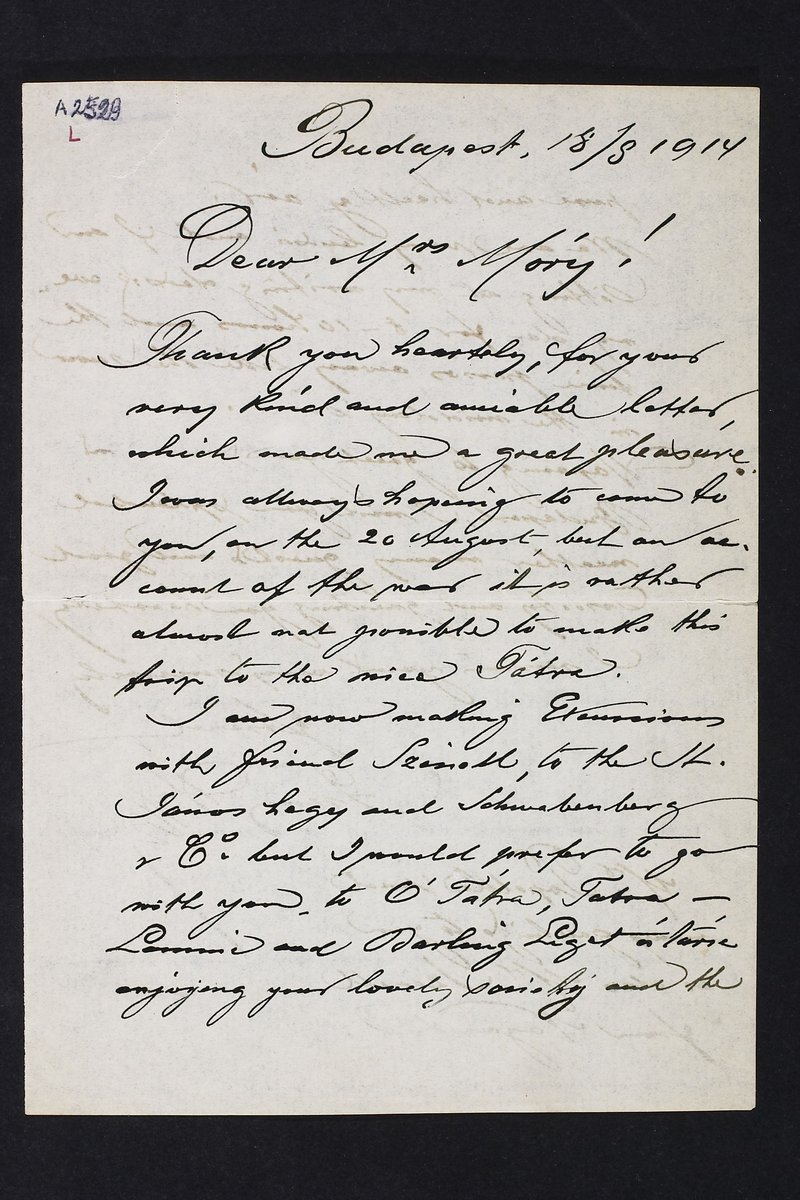 A 2529
L
Budapest, 18/8 1914
Dear Mrs Móry!
Thank you heartely, for your
very kind and amiable letter,
which made me a great pleasure.
I was allways hoping to come to
you, on the 20 August, but on ac-
count of the war it is rather
almost not possible to make this
trip to the nice Tátra.
I am now making Excursions
with friend to the St.
János hegy and Schwabenberg
& Co. but I would prefer to go
with you, to O' Tátra, Tatra –
Lomnic and Barlang Liget
enjoying your lovely society and the